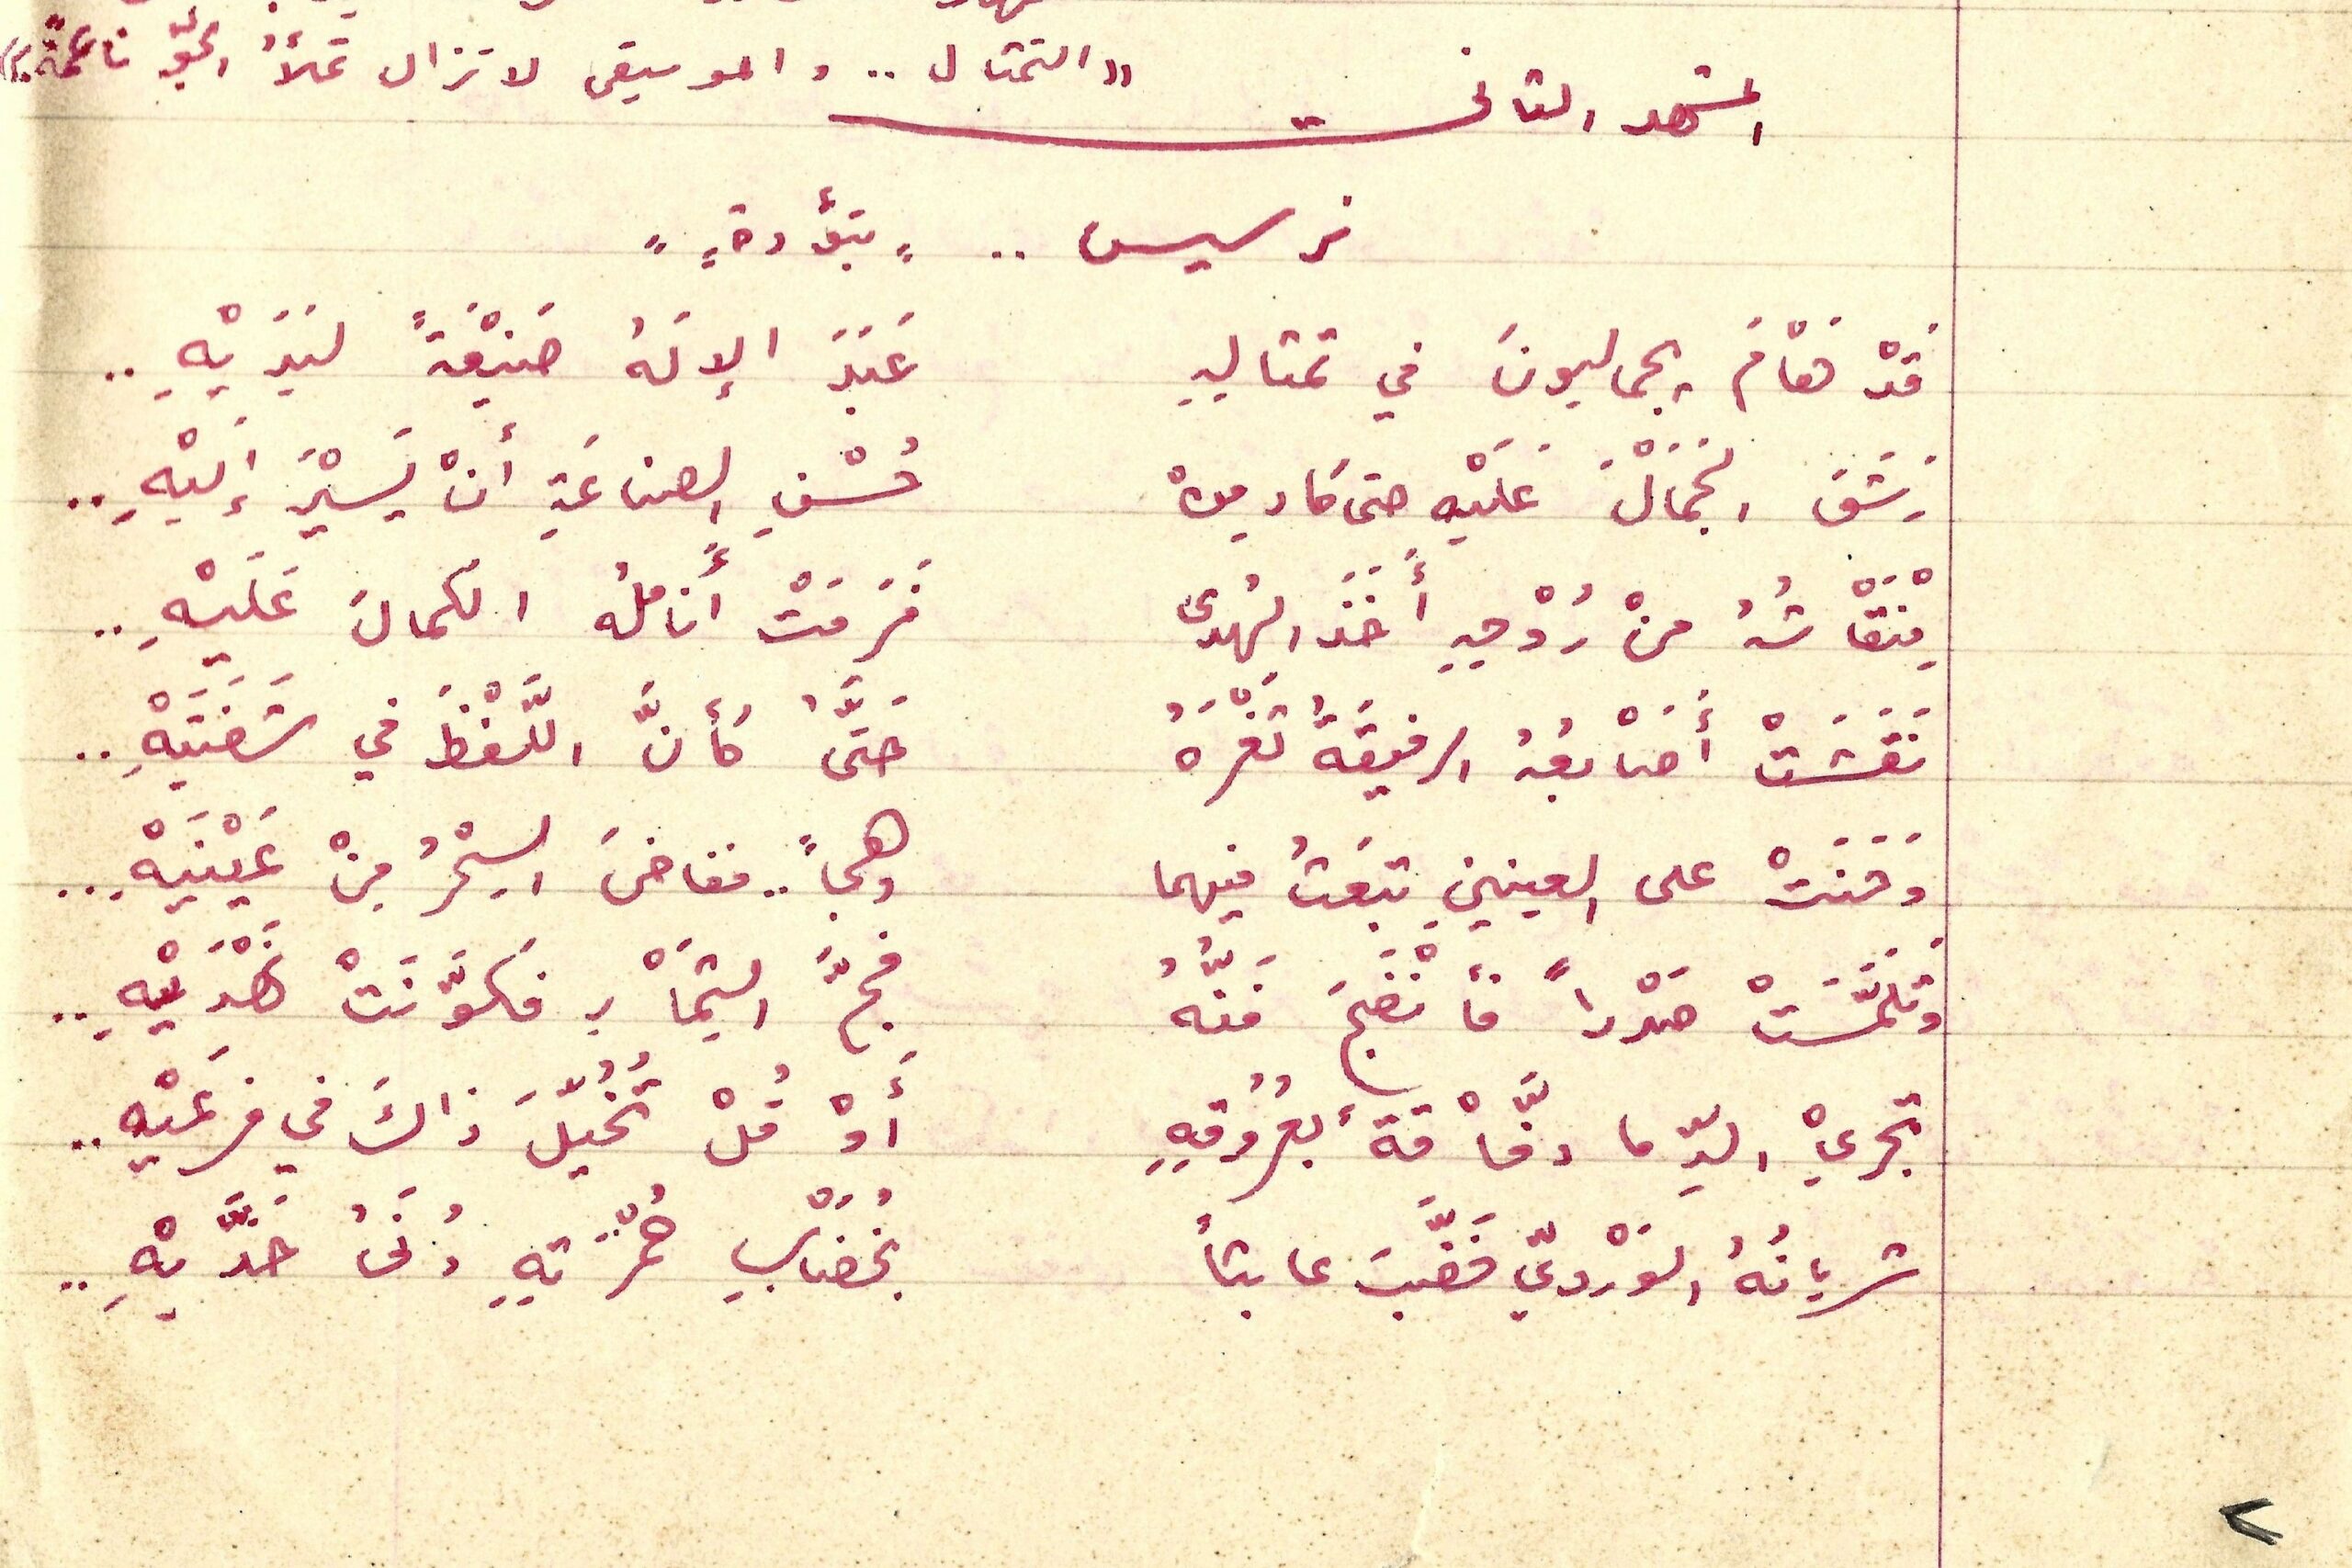 المشهد الثاني «التمثال .. والموسيقى لا تزال تملأُ الجوّ ناعمةً..»
نرسيس .. "بتؤدةٍ"
قَدْ هَاْمَ بجماليونَ في تمثالِهِ عَبَدَ الإلَهُ صَنِيْعَةً ليَدَيْهِ ..
رَشَقَ الجَمَاْلَ عَلَيْهِ حتى كاد من حُسْنِ الصناعَةِ أنْ يَسِيْرَ إلَيْهِ ..
مِنْقَاْشُهُ منْ رُوْحِهِ أَخَذَ الهُدى فَرَمَتْ أَناملُه الكمالَ عَلَيْهِ ..
نَقَشَتْ أَصَاْبعُهُ الرفيقَةُ ثَغْرَهُ حَتَّى كَأَنَّ اللَّفْظَ في شَفَتَيْهِ ..
وَحَنَتْ على العينينِ تبعَثُ فيهما وهجاً .. ففاضَ السِحْرُ مِنْ عَيْنَيْهِ ..
وَتَلَمَّسَتْ صَدْراً فَأَنْضَجَ فَنُّهُ فجَّ الثِمَاْرِ فكَوَّنَتْ نَهْدَيْهِ ..
تجريْ الدِّما دفَّاْقةً بعُرُوقِهِ أَوْ قُلْ تُخُيِّلَ ذاكَ في فرعَيْهِ ..
شريانُهُ الوَرْديّ خَضَّبَ عابثاً بخُضَاْبِ حُمْرَتِهِ دُنَى خَدَّيْهِ ..